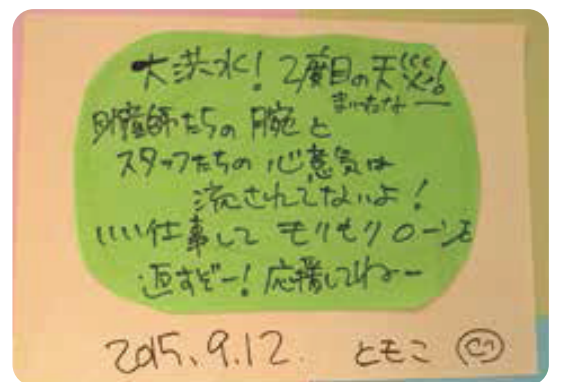 大洪水！2度目の天災！
助産師たちの腕と
スタッフたちの心意気は
流されてないよ！
いい仕事して モリモリローンを
返すぞー！応援してねー
2015.9.12. ともこ